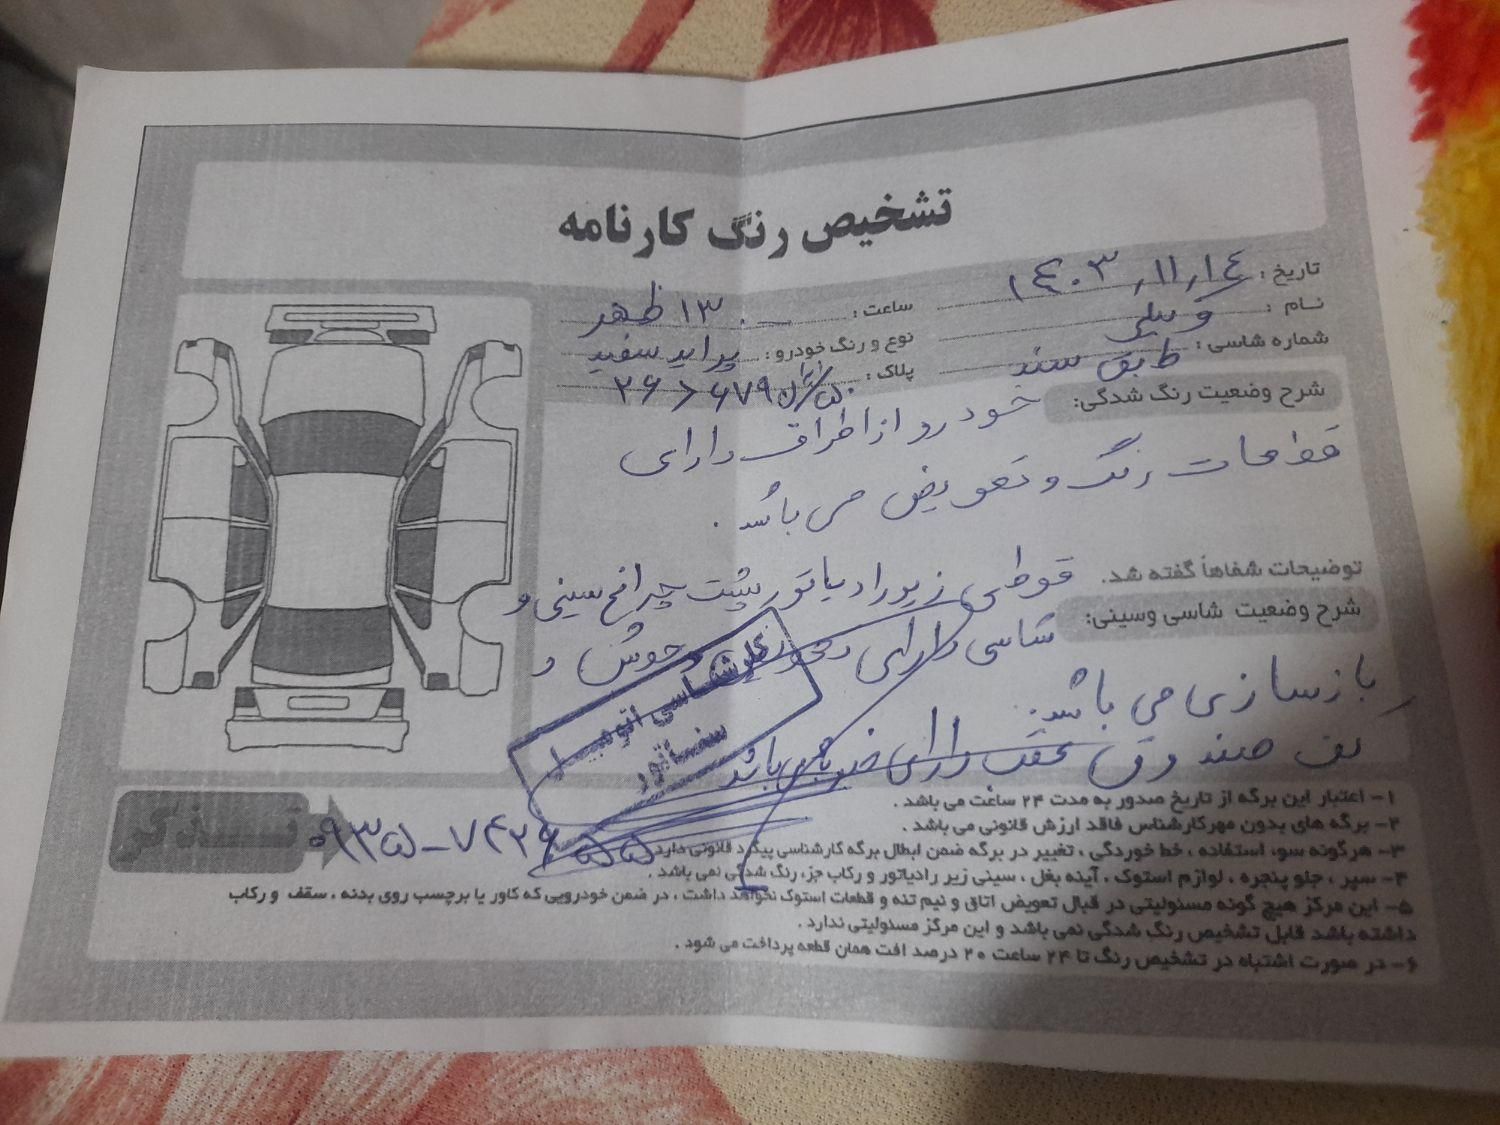 تشخیص رنگ کارنامه
تاریخ : ۱۴۰۳,۱۱,۱۴
ساعت : ۱۳۰۰ ظهر
نام : وکیلی
نوع و رنگ خودرو : پراید سفید
شماره شاسی : طبق سند
پلاک :
شرح وضعیت رنگ شدگی: خودرو از اطراف دارای
قطعات رنگ و تعویض می باشد .
توضیحات شفاهاً گفته شد.
شرح وضعیت شاسی وسینی: قوطی زیر رادیاتور پشت چراغ سینی و
شاسی دارای و جوش و
بازسازی می باشد.
کف صندوق عقب دارای ضربه می باشد
کارشناسی اتومبیل
سناتور
تــذکر
۱- اعتبار این برگه از تاریخ صدور به مدت ۲۴ ساعت می باشد .
۲- برگه های بدون مهرکارشناس فاقد ارزش قانونی می باشد .
۳- هرگونه سوء استفاده ، خط خوردگی ، تغییر در برگه ضمن ابطال برگه کارشناسی پیگرد قانونی دارد
۴- سپر ، جلو پنجره ، لوازم استوک ، آینه بغل ، سینی زیر رادیاتور و رکاب جزء رنگ شدگی نمی باشد .
۵- این مرکز هیچ گونه مسئولیتی در قبال تعویض اتاق و نیم تنه و قطعات استوک نخواهد داشت ، در ضمن خودرویی که کاور یا برچسب روی بدنه ، سقف و رکاب
داشته باشد قابل تشخیص رنگ شدگی نمی باشد و این مرکز مسئولیتی ندارد .
۶- در صورت اشتباه در تشخیص رنگ تا ۲۴ ساعت ۲۰ درصد افت همان قطعه پرداخت می شود .